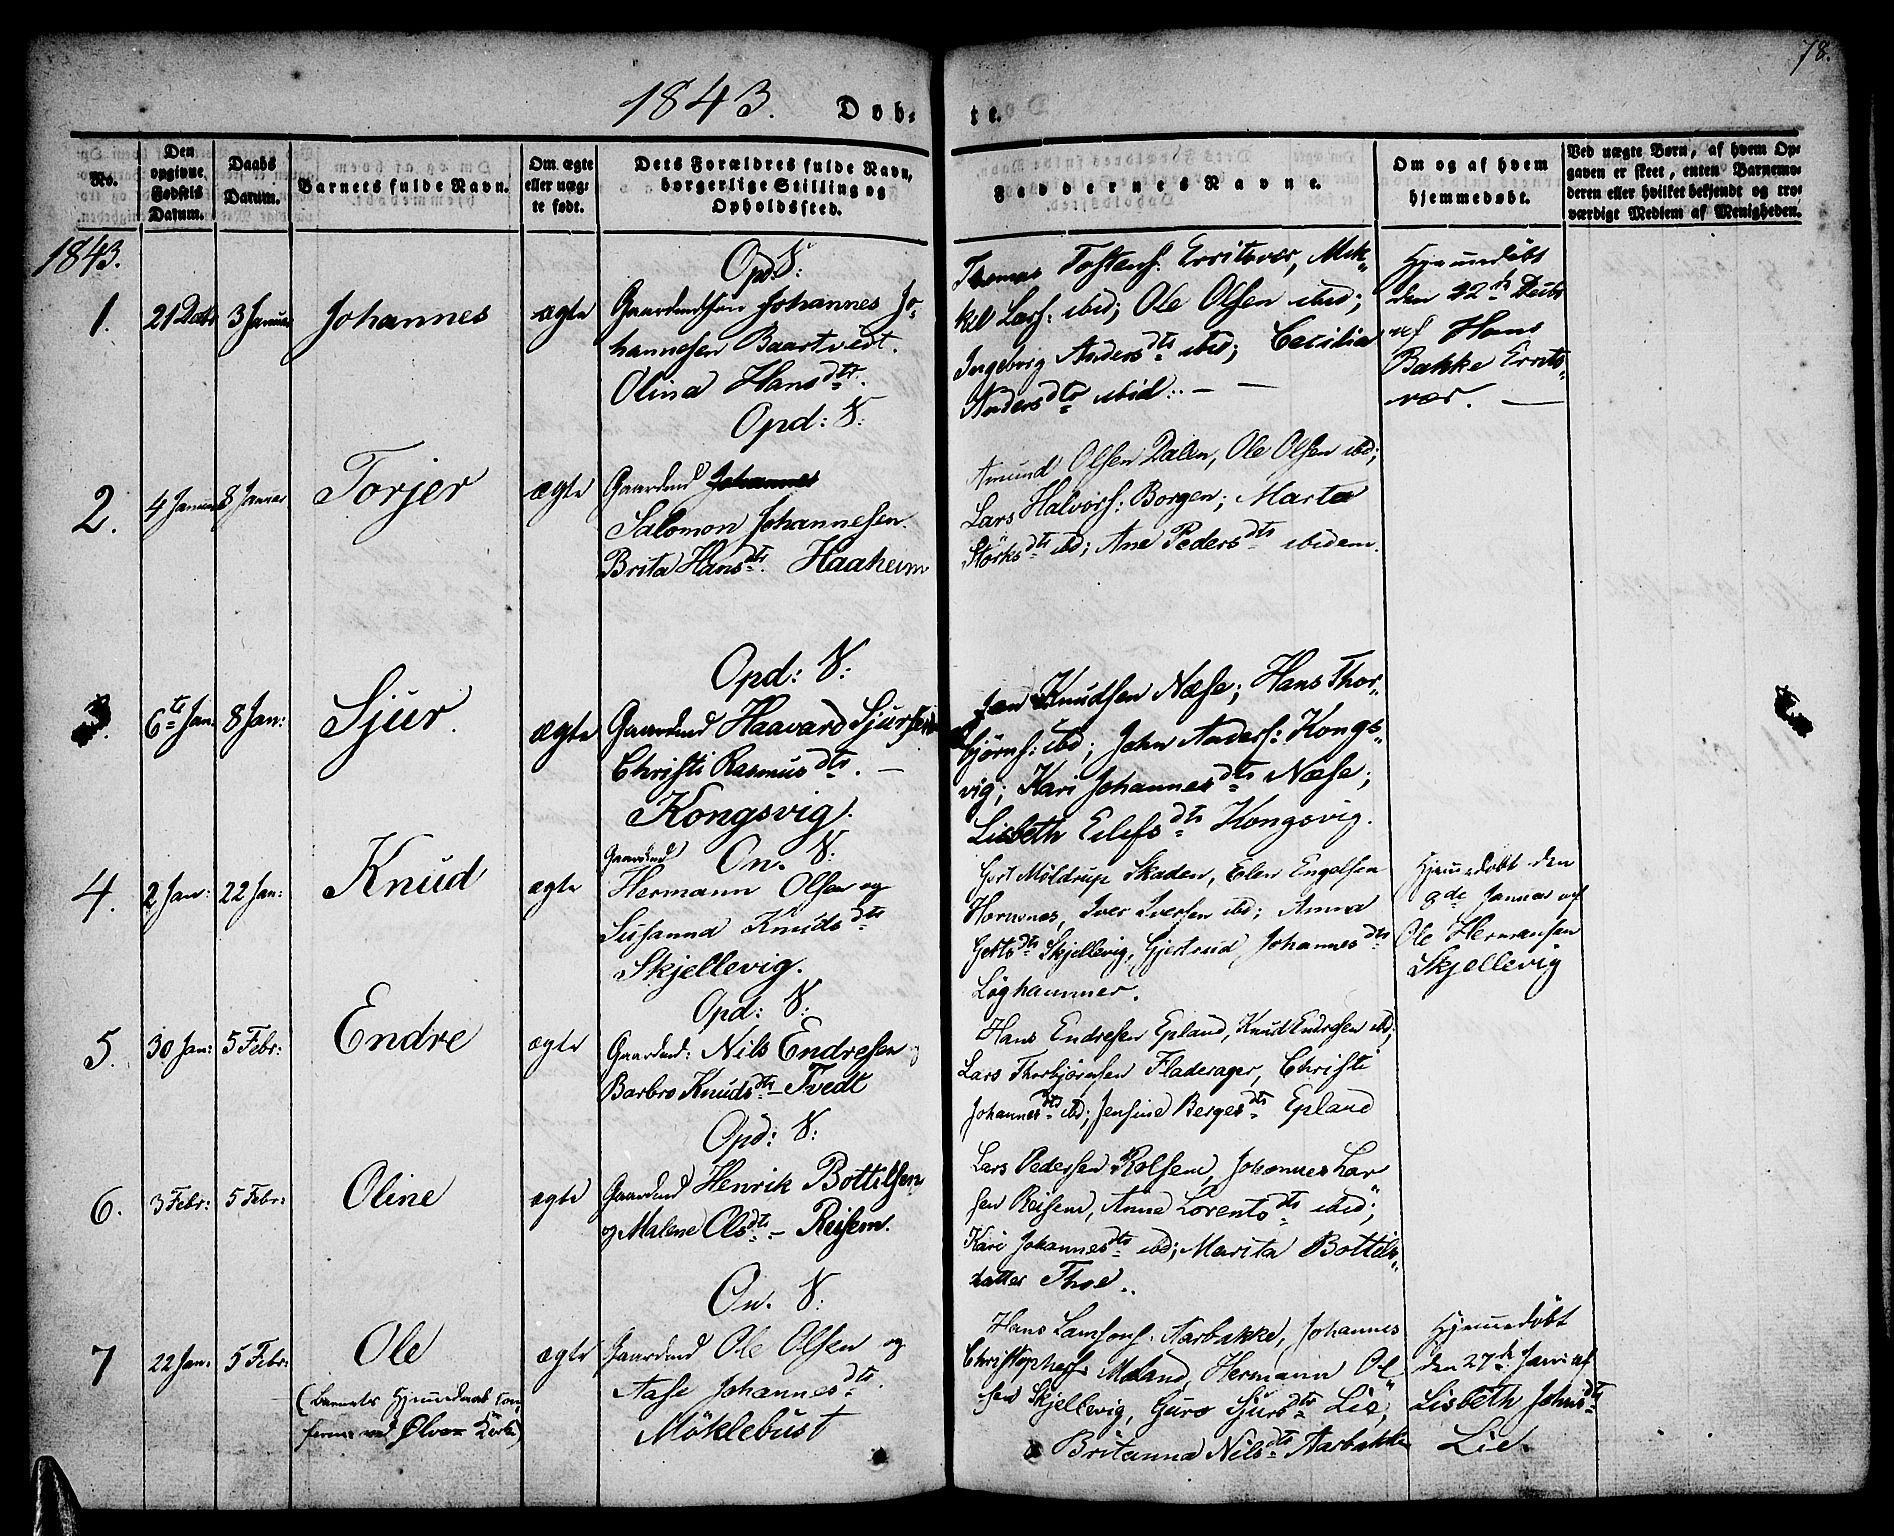 78.
1843. Døb-
te.
No.
Den opgivne Fødsels Datum.
Daabs Datum.
Barnets fulde Navn.
Om ægte eller uægte født.
Dets Forældres fulde Navn, borgerlige Stilling og Opholdssted.
Faddernes Navne.
Om og af hvem hjemmedøbt.
Ved uægte Børn, af hvem Opgaven er skeet, enten Barnemoderen eller hvilket bekjendt og troværdigt Medlem af Menigheden.
1843.
1. 21 Decbr 3 Januar Johannes ægte
Opd: V:
Gaardmdsøn Johannes Jo-
hannesen Baartvedt.
Olina Hansdtr.
Thomas Tostens: Erritsvær, Mik-
kel Lars: ibid; Ole Olsen ibid;
Ingeborg Andersdtr ibid; Cecilia
Andersdtr ibid:. —
Hjemmedøbt
den 22de Decbr
af Hans
Bakke Errits-
vær. —
2. 4 Januar 8 Januar Torjer ægte
Opd: V:
Gaardmd
Salomon Johannesen.
Brita Hansdtr. Haaheim
Amund Olsen Dalen, Ole Olsen ibd;
Lars Halvors: Borgen; Marta
Størksdtr ibd; Ane Pedersdtr ibidem.
3. 6te Jan: 8 Jan: Sjur. ægte
Opd: V:
Gaardmd Haavard Sjursen
Christi Rasmusdtr. —
Kongsvig.
Jan Knudsen Næse; Hans Thor-
bjørns: ibd; John Anders: Kongs-
vig; Kari Johannesdtr Næse;
Lisbeth Eilefsdtr Kongsvig.
4. 2 Jan: 22 Jan: Knud ægte
Gaardmd On. V:
Hermann Olsen og
Susanna Knudsdtr
Skjellevig.
Gert Møldrup Skaden, Elen Engelsen
Hornnes, Iver Iversen ibd; Anna
Gertsdtr Skjellevig, Gjertrud Johannesdtr
Løghammer.
Hjemmedøbt den
8de Januar af
Ole Hermansen
Skjellevig
5. 30 Jan: 5 Febr: Endre ægte
Opd: V:
Gaardmd: Nils Endresen og
Barbro Knudsdtr — Tvedt
Hans Endresen Epland, Knud Endresen ibd;
Lars Thorbjørnsen Fladerager, Christi
Johannesdtr ibd; Jensine Bergesdtr Epland
6. 3 Febr: 5 Febr: Oline ægte
Opd: V:
Gaardmd Henrik Bottelsen
og Malene Olsdtr — Reisem.
Lars Pedersen Rolsem, Johannes Lar-
sen Reisem, Anna Lorentsdtr ibid;
Kari Johannesdtr ibd; Marita Bottels-
datter Thoe.
7 22 Jan: 5 Febr: Ole ægte
(barnets Hjemmedaab con-
fereret ved Ølven Kirke)
On. V:
Gaardmd Ole Olsen og
Aase Johannesdtr.
Møklebust
Hans Lamsons: Aarbakke, Johannes
Christophers: Maland, Hermann Ol-
sen Skjellevig, Guro Sjursdtr Lie,
Britanna Nilsdtr Aarbakke
Hjemmedøbt
den 27de Jan: af
Lisbeth Johnsdtr
Lie.